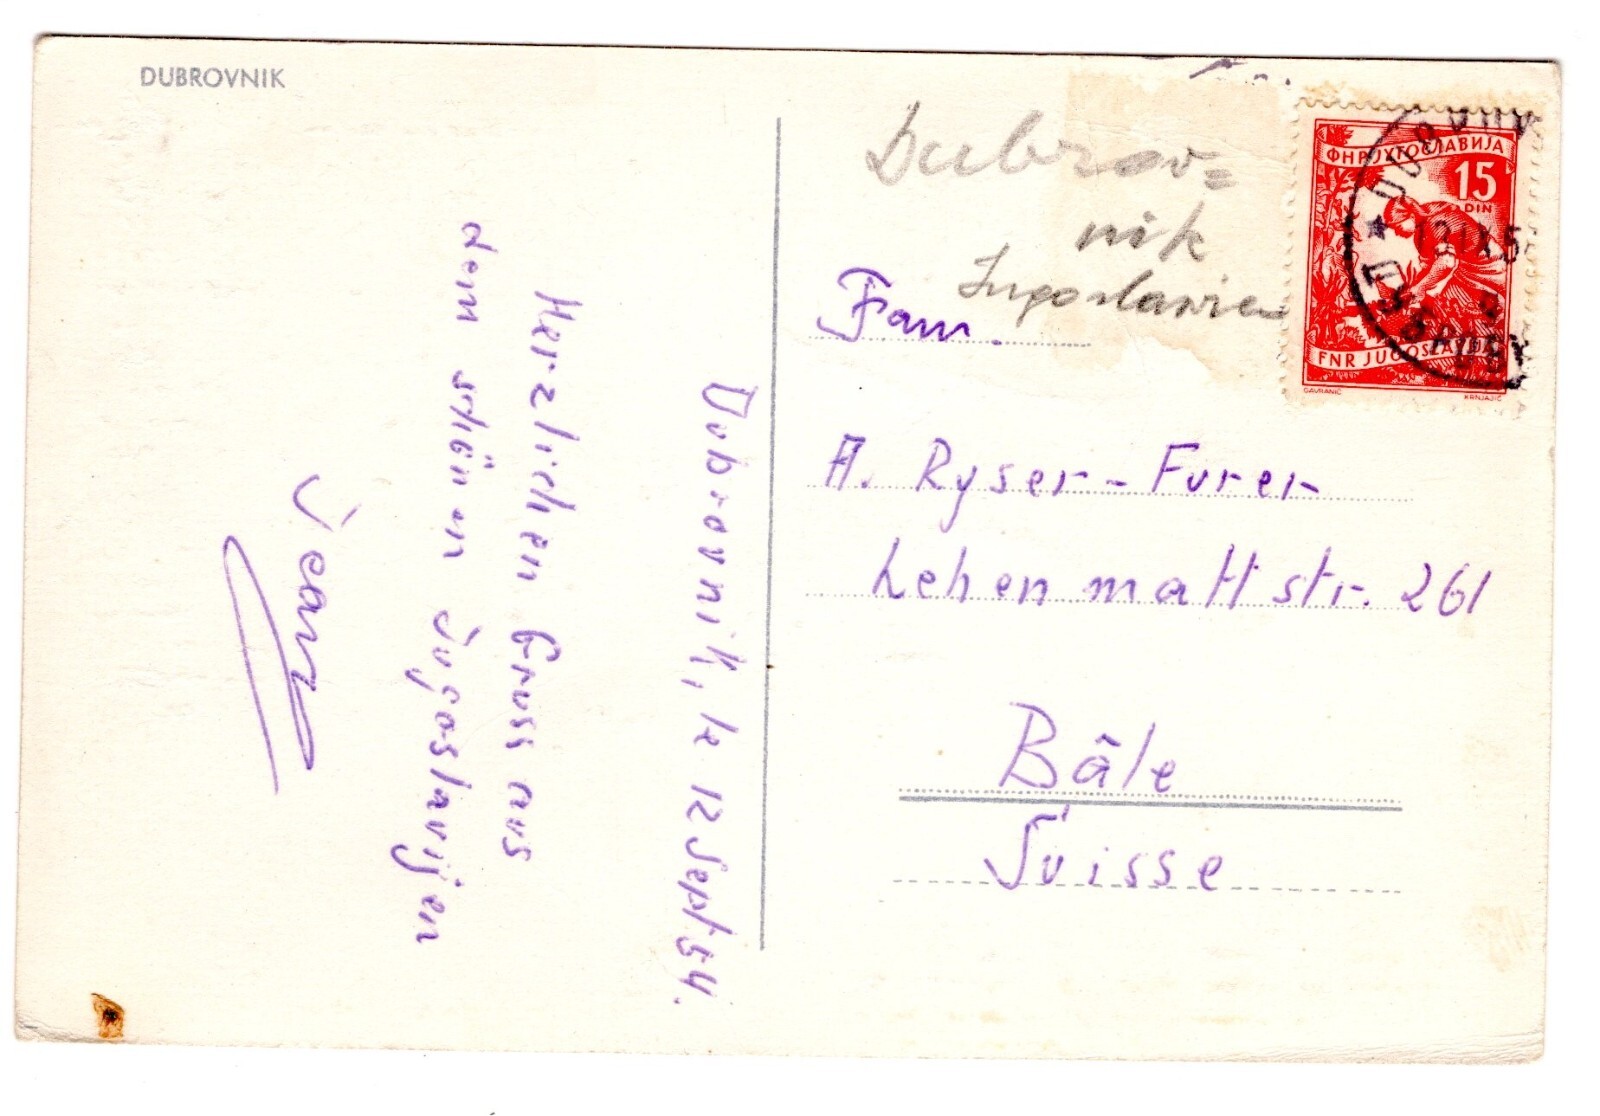 DUBROVNIK
Dubrovnik, le 12 Sept. 54.
Herzlichen Gruss aus
dem schönen Jugoslavijen
Jean
Dubrov=
nik
Jugoslawien
Fam.
A. Ryser-Furer
Lehenmattstr. 261
Bâle
Suisse
ФНР ЈУГОСЛАВИЈА
15
DIN
FNR JUGOSLAVIJA
GAVRANIĆ
KRNJAJIĆ